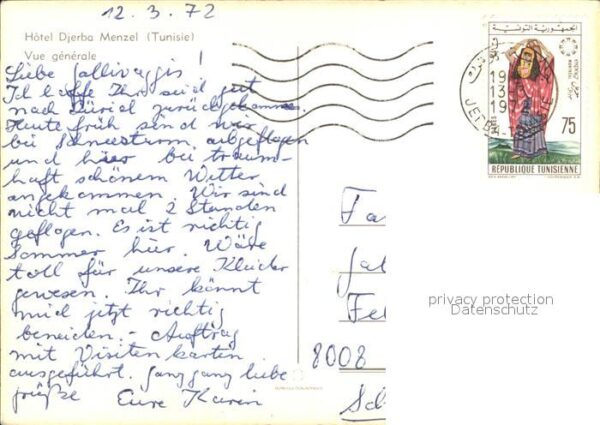 12.3.72
Hôtel Djerba Menzel (Tunisie)
Vue générale
Liebe Gallivaggis!
Ich hoffe Ihr seid gut
nach Zürich zurückgekommen.
Heute früh sind wir
bei Schneesturm abgeflogen
und hier bei traum-
haft schönem Wetter
angekommen. Wir sind
nicht mal 2 Stunden
geflogen. Es ist richtig
Sommer hier. Wäre
toll für unsere Kleider
gewesen. Ihr könnt
mich jetzt richtig
beneiden. - Auftrag
mit Visitenkarten
ausgeführt. Ganz ganz liebe
Grüße Eure Karin
Fa
Gal
Fel
8008
Sch
privacy protection
Datenschutz
الجمهورية التونسية
19
13
197
75
REPUBLIQUE TUNISIENNE